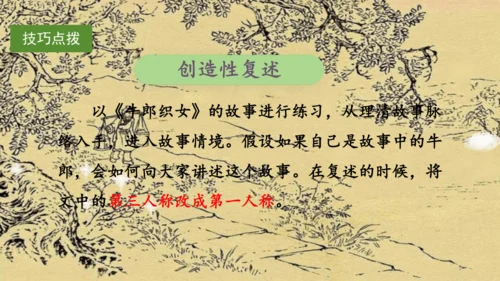 技巧点拨
创造性复述
以《牛郎织女》的故事进行练习，从理清故事脉
络入手，进入故事情境。假设如果自己是故事中的牛
郎，会如何向大家讲述这个故事。在复述的时候，将
文中的第三人称改成第一人称。